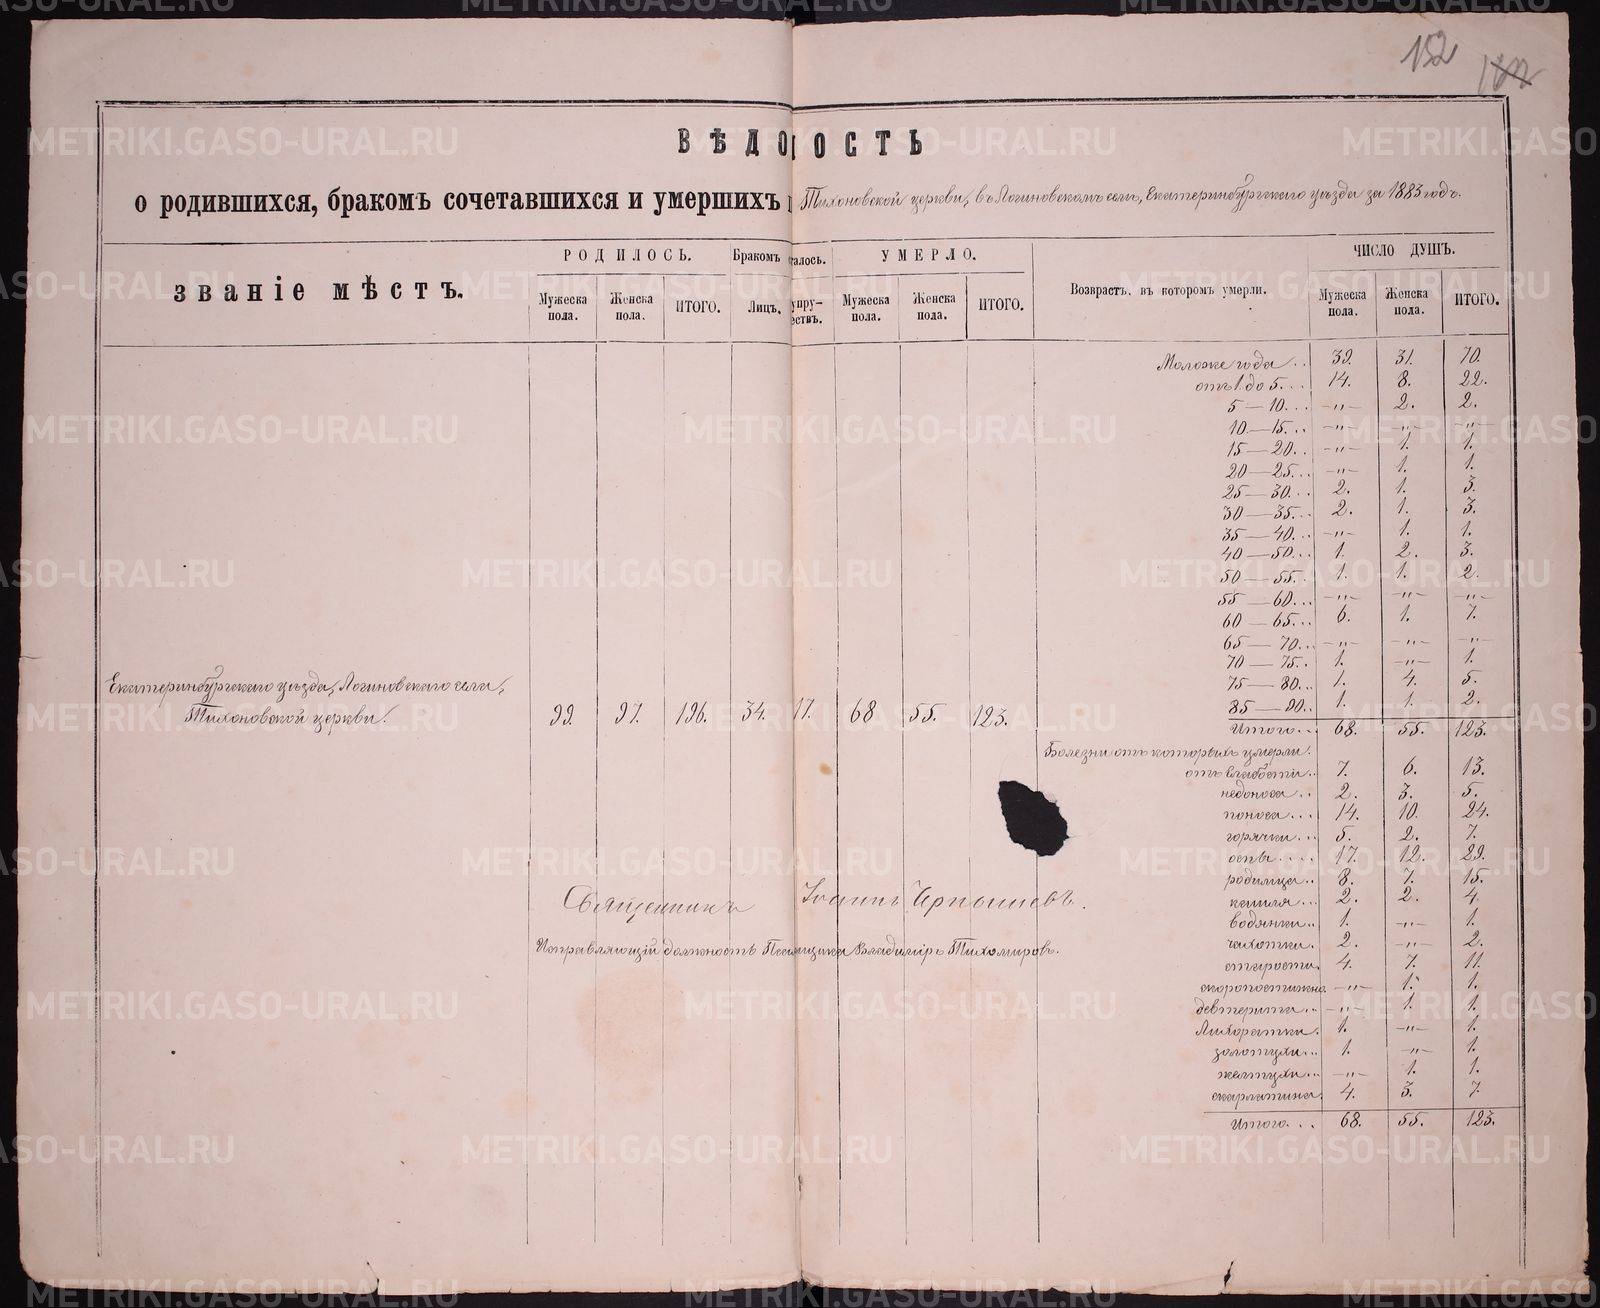 152
ВѢДОМОСТЬ
о родившихся, бракомъ сочетавшихся и умершихъ Тихоновской церкви, въ Логиновскомъ селѣ, Екатеринбургскаго уѣзда за 1883 годъ.
званіе мѣстъ.
РОДИЛОСЬ.
Мужеска пола.
Женска пола.
ИТОГО.
Бракомъ
талось.
Лицъ.
упру-
ествъ.
УМЕРЛО.
Мужеска пола.
Женска пола.
ИТОГО.
Возврастъ, въ которомъ умерли.
ЧИСЛО ДУШЪ.
Мужеска пола.
Женска пола.
ИТОГО.
Моложе года .. 39. 31. 70.
отъ 1 до 5... 14. 8. 22.
5—10... —"— 2. 2.
10—15... —"— —"— —"—
15—20.. —"— 1. 1.
20—25... —"— 1. 1.
25—30... 2. 1. 3.
30—35... 2. 1. 3.
35—40... —"— 1. 1.
40—50... 1. 2. 3.
50—55.. 1. 1. 2.
55—60... —"— —"— —"—
60—65... 6. 1. 7.
65—70... —"— —"— —"—
70—75.. 1. —"— 1.
75—80... 1. 4. 5.
85—90.. 1. 1. 2.
Итого... 68. 55. 123.
Екатеринбургскаго уѣзда, Логиновскаго села,
Тихоновской церкви. 99. 97. 196. 34. 17. 68 55. 123.
Болезни отъ которыхъ умерли.
отъ слабости.. 7. 6. 13.
недоноса.. 2. 3. 5.
поноса... 14. 10. 24.
горячки... 5. 2. 7.
оспы.... 17. 12. 29.
родимца.. 8. 7. 15.
кашля... 2. 2. 4.
водянки.. 1. —"— 1.
чахотки. 2. —"— 2.
старости. 4. 7. 11.
скоропостижно. —"— 1. 1.
девтерита.. —"— 1. 1.
Лихоратки. 1. —"— 1.
золотухи... 1. —"— 1.
желтухи.. —"— 1. 1.
скарлатина. 4. 3. 7.
Итого... 68. 55. 123.
Священникъ Іоаннъ
Исправляющій должность Псаломщика Владиміръ Тихомировъ.
METRIKI.GASO-URAL.RU